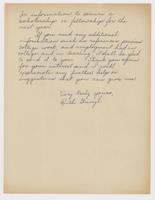 for information to secure a
scholarship or fellowship for the
next year.
If you need any additional
information such as references, previous
college work, and employment had in
college and in teaching, I shall be glad
to send it to you. I thank you again
for your interest and I will
appreciate any further help or
suggestions that you can give me.
Very truly yours,
Ruth